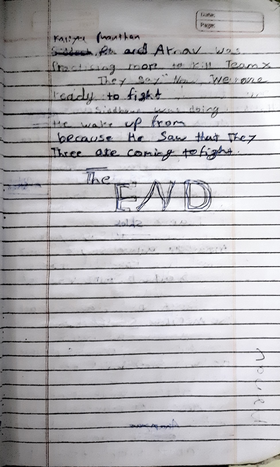 Date
Page
manthan
and Arnav was
Practising more to kill Team x
They say "Now, we are
ready to fight
was doing
He wake up from
because He saw that They
Three are coming to fight.
The
END